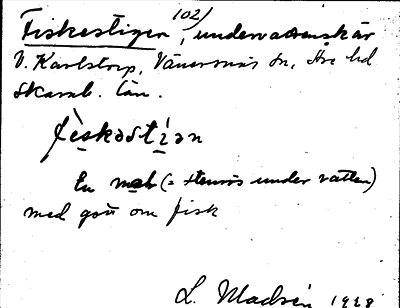 102)
Fiskestigen, undervattenskär
V. Karlstorp, Vänersnäs sn, Åse hd
Skarab. län.
fiskəstiən
En (= stenrös under vatten)
med gott om fisk
L. Madsén 1928